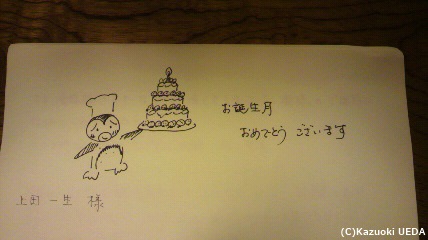 お誕生月
おめでとう ございます
上田 一生 様
(C)Kazuoki UEDA